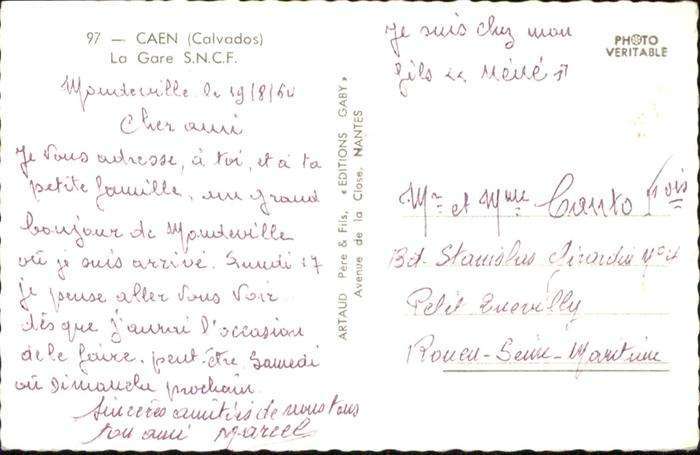 97 — CAEN (Calvados)
La Gare S.N.C.F.
Mondeville le 19/8/60
Cher ami
Je vous adresse, à toi, et à ta
petite famille, un grand
bonjour de Mondeville
où je suis arrivé. Lundi 17
je pense aller vous voir
dès que j'aurai l'occasion
de le faire. peut-être Samedi
où Dimanche prochain.
Sincères amitiés de nous tous
ton ami Marcel
ARTAUD Père & Fils, «EDITIONS GABY»
Avenue de la Close, NANTES
Je suis chez mon
fils
PHOTO
VERITABLE
Mr et Mme Canto
Bd. Stanislas Girardin
Petit Quevilly
Rouen-Seine-Maritime